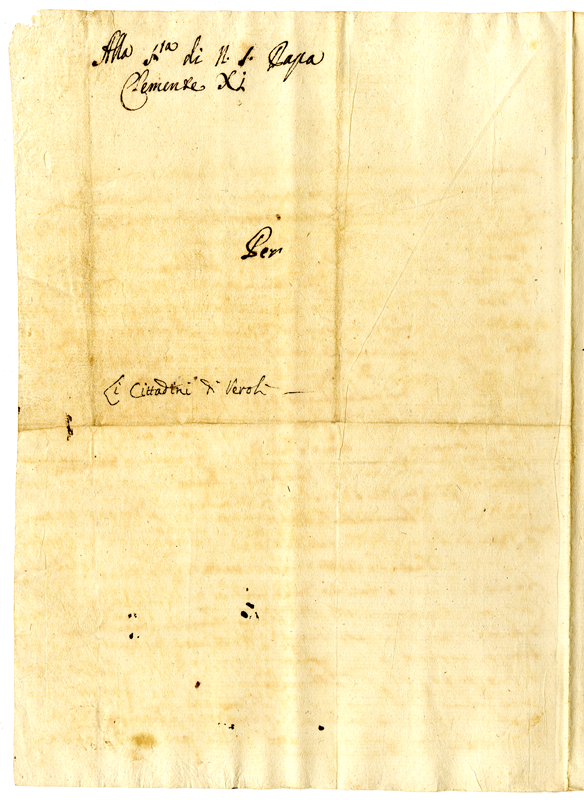 Alla Sta di N. S. Papa
Clemente XI
Per
Li Cittadini di Veroli